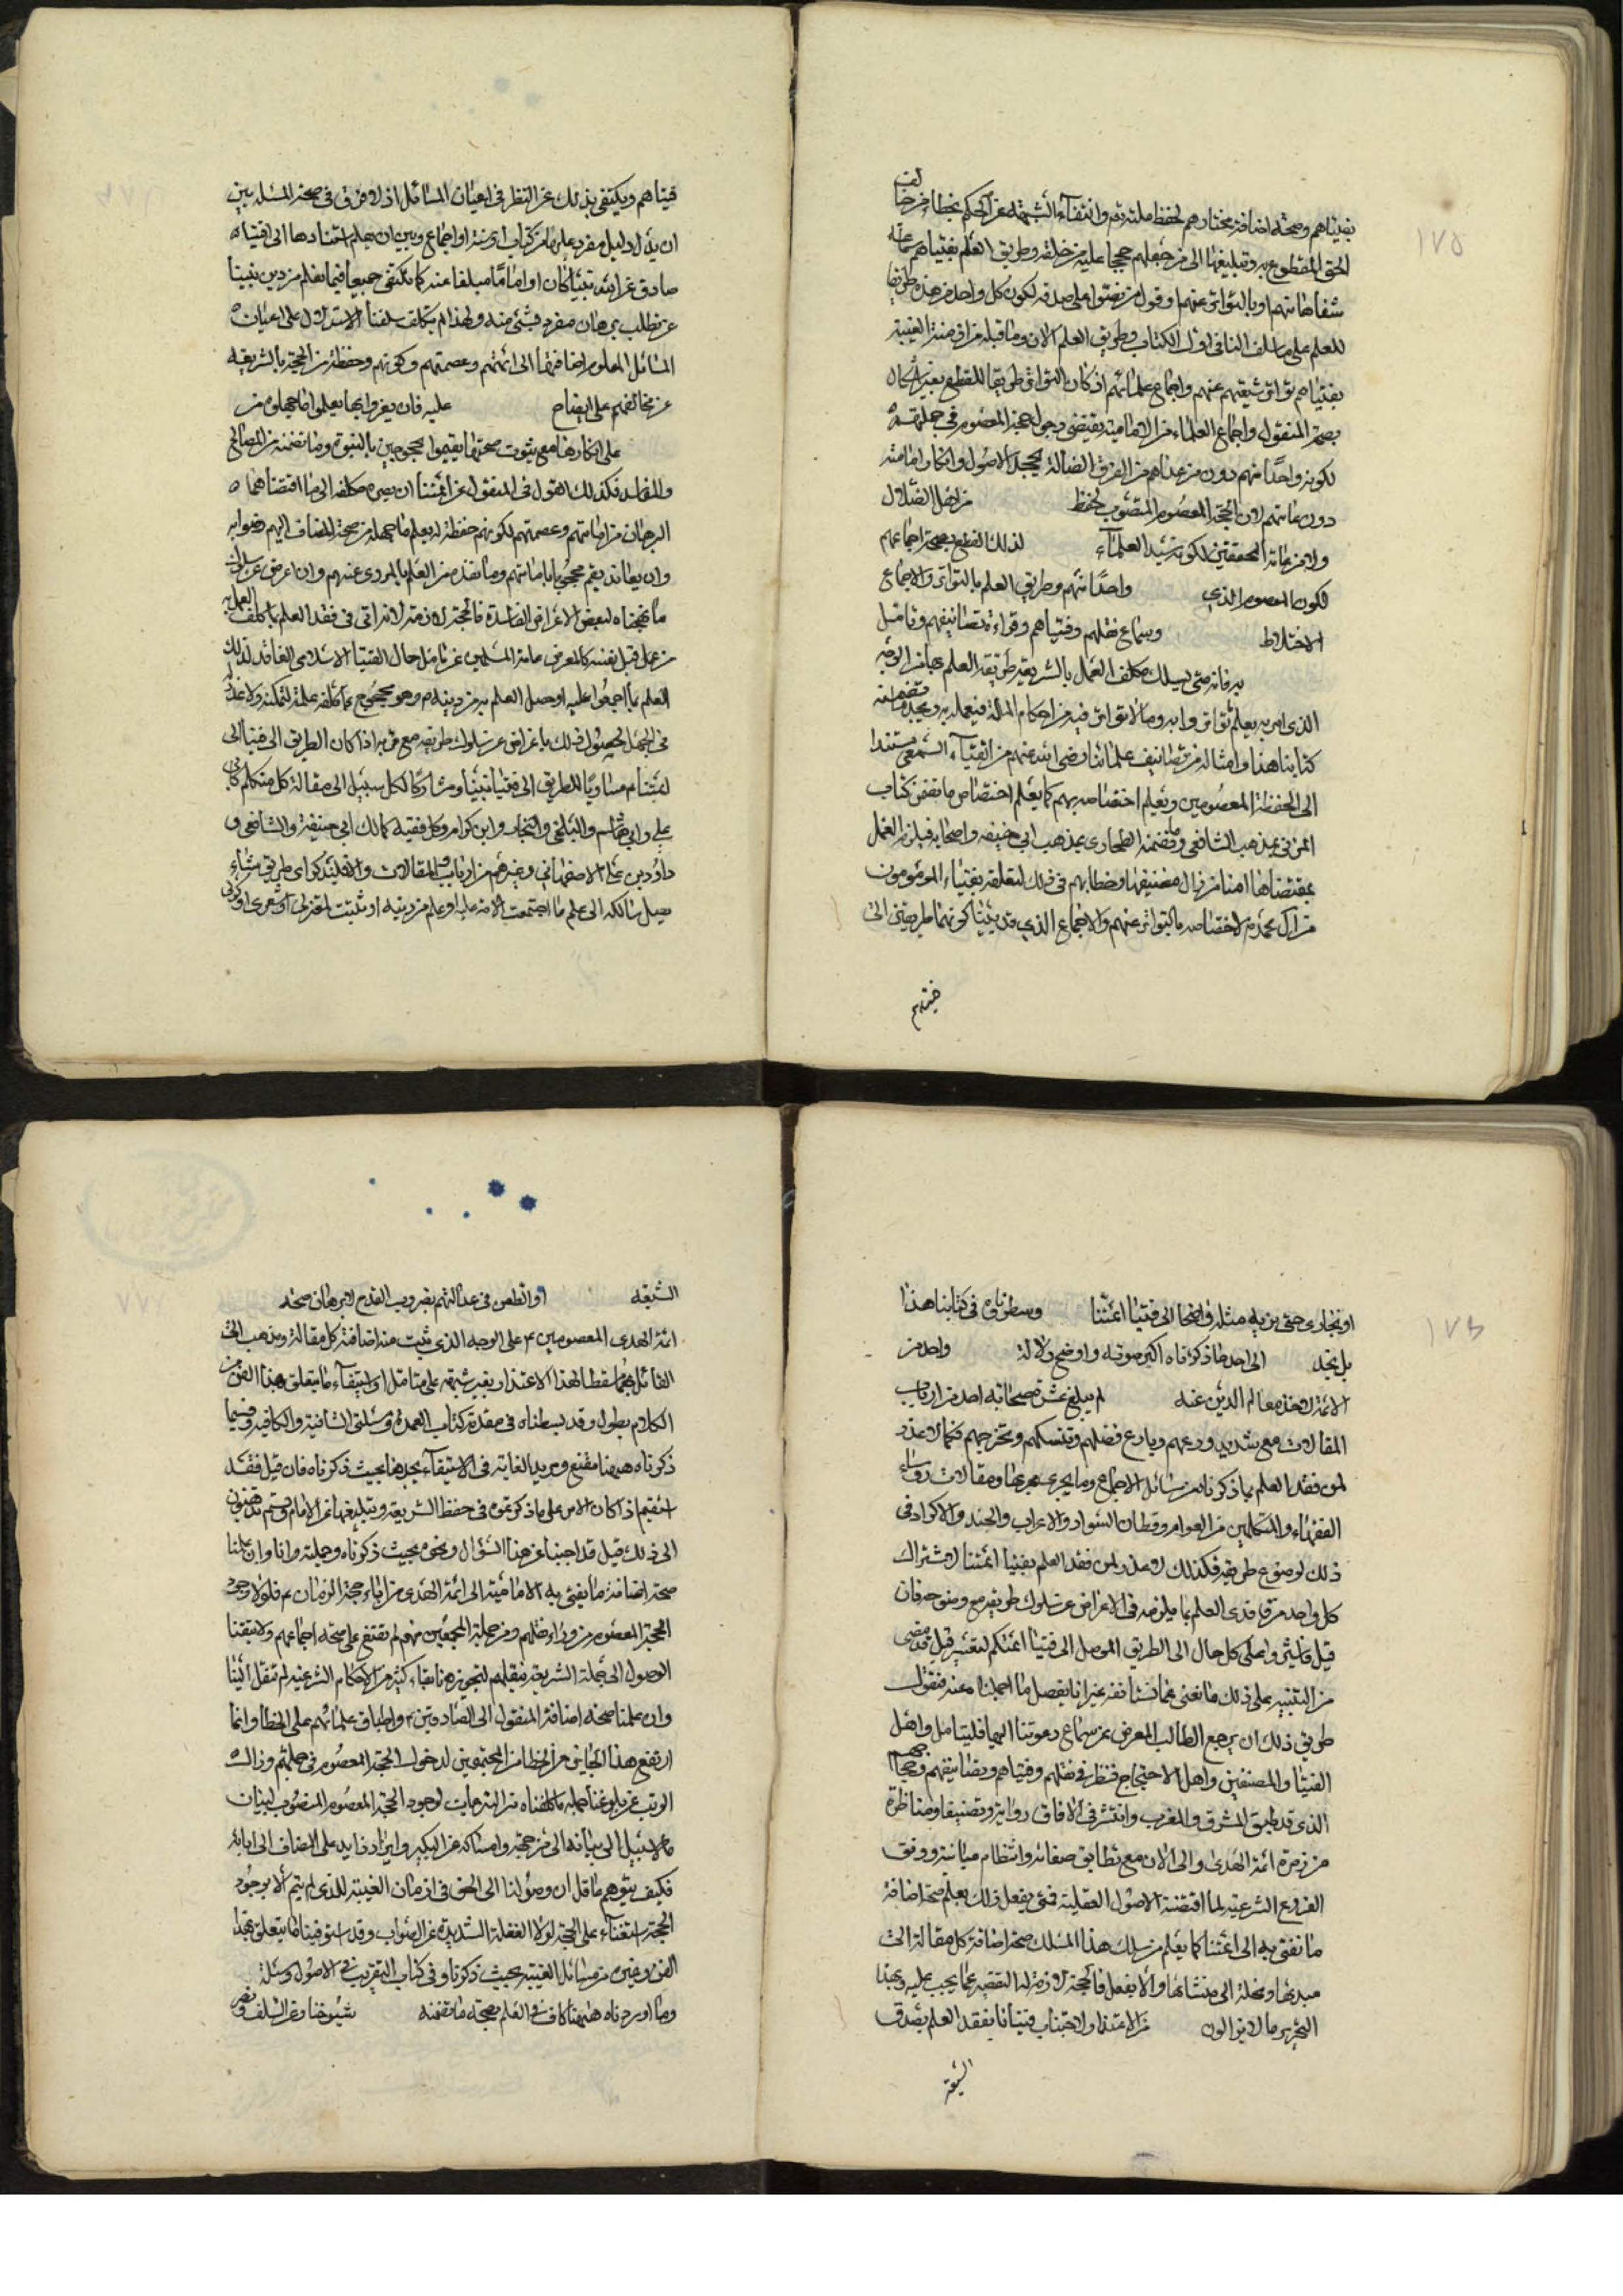 ١٧٥
بفتياهم وصحة اضافة مختارهم لحفظ ملته تم وانتفاء الشبهة عن الحكم بخطأ من خالف
الحق المقطوع به وتبليغها الى من جعلهم حججا عليه من خلقه وطريق العلم بفتياهم سماعه
شفاها منهم او بالتواتر عنهم او قول من نصوا على صدقه لكون كل واحد من هذه طريقا
للعلم على ما سلف لنا في اول الكتاب وطريق العلم الان وما قبله من ازمنة الغيبة
بفتياهم تواتر شيعتهم عنهم واجماع علمائهم اذ كان التواتر طريقا للقطع بغير اشكال
بصحة المنقول واجماع العلماء من الامامية يقتضي دخول الحجة المعصوم في جملتهم
لكونه واحدا منهم دون من عداهم من الفرق الضالة بجحد الاصول وانكار امامته
دون عامتهم لان الحجة المعصوم المنصوب لحفظ من اهل الضلال
ولا من عامة المحققين لكونه سيد العلماء لذلك القطع بصحة اجماعهم
لكون المعصوم الذي واحدا منهم وطريق العلم بالتواتر والاجماع
الاختلاط وسماع نقلهم وفتياهم وقراءة تصانيفهم وتامل
به فانه متى يسلك مكلف العمل بالشريعة طريقة العلم بها من الوجه
الذي امر به يعلم تواتر وابه وما لا تواتر فيه من احكام الملة فيعمله به ويجد ما تضمنه
كتابنا هذا وامثاله من تصانيف علمائنا رضى الله عنهم من الفتياء السمعي مستندا
الى الحفظة المعصومين ويعلم اختصاصه بهم كما يعلم اختصاص ما تضمن كتاب
المزني بمذهب الشافعي وما تضمنه الطحاوي بمذهب ابي حنيفه واصحابه فيلزمه العمل
بمقتضاها امنا من زلل مصنفيها وخطابهم في ذلك لتعلقه بفتياء المؤتمون
من ال محمد م لاختصاصه بالتواتر عنهم والاجماع الذي قد بيننا كونهما طريقين الى
فتياهم
فتياهم ويكتفي بذلك عن النظر في اعيان المسائل اذ لا فرق في صحة المسئله بين
ان يدل دليل مفرد عليها من كتاب او سنة او اجماع وبين ان يعلم استنادها الى افتياء
صادق عن الله تع نبيّا كان او اماما مبلغا عنه كما نكتفي جميعا فيما نعلم من دين نبينا
عن تطلب برهان مفرد بشيء منه ولهذا لم يتكلف سلفنا الاستدلال على اعيان
المسائل المعلوم اضافتها الى ائمتهم وعصمتهم وكونهم وحفظة من الحجة بالشريعة
عن مخالفهم على ايضاح عليه فان يفزوا بها يعلموا ما جهلوه من
على انكارها مع ثبوت صحتها يقيموا محجوجين بالنبوة وما تضمنه من المصالح
والمفاسد فكذلك القول في المنقول عن ائمتنا ان يصره مكلفه الى ما اقتضاهما
البرهان من امامتهم وعصمتهم لكونهم حفظة له يعلم ما جهله من صحة المضاف اليهم وضوابه
وان يعاند يقم محجوبا بامامتهم وما نفذ من العلم بالمروى عنهم وان اعرض عن سلوك
ما نهجناه لبعض الاغراض الفاسدة فالحجة لازمة له لانه اتى في فقد العلم بما كلف العمل به
من عمل قبل نفسه كالمعرض عامة المسلمين عن تامل حال الفتيا الاسلامى الفاقد لذلك
العلم بما اجمعوا عليه او حصل العلم به من دينه م وهو محجوج بما كلفه علمة لتمكنه ولا عذر
في الجهل لحصول ذلك باعراض عن سلوك طريقه مع قربه اذا كان الطريق الى فتيا الى
ائمتنا م مساويا للطريق الى فتيا نبينا ومشاركا لكل سبيل الى مقالة كل متكلم كابي
علي وابي هاشم والبلخي والنجار وابن كرام وكل فقيه كمالك ابي حنيفة والشافعي و
داود بن علي الاصفهاني وغيرهم من ارباب المقالات والتقليد كراى طريق شاء
يصل سالكه الى علم ما اجتمعت الامة عليه او علم من دينه او ثبتت لمعتزلي او شعري او كرى
١٧٦
او نجارى حتى يزيه مثله واضحا الى فتيا ائمتنا وسطرناه في كتابنا هذا
بل يجد الى احد ما ذكرناه اكبر صوته واوضح دلالة واحد من
الائمة لاخذ معالم الدين عنه لم يبلغ عشر صحابة احد من ارباب
المقالات مع شديد ورعهم وبارع فضلهم وتنسكهم وتحرجهم فكما لا عذر
لمن فقد العلم بما ذكرناه من مسائل الاجماع وما يجرى مجريها ومقالات روساء
الفقهاء والمتكلمين من العوام وقطان السواد والاعراب والجند والاكراد في
ذلك لوضوح طريقه فكذلك لا عذر لمن فقد العلم بفتيا ائمتنا لاشتراك
كل واحد من فاقدى العلم بما يلزمه في الاعراض عن سلوك طريقه مع وضوحه فان
قيل فاشيروا على كل حال الى الطريق الموصل الى فتيا ائمتكم لنعتبره قيل قد مضى
من التنبيه على ذلك ما يغني عما نستانفه غير انا نفصل ما اجملناه عنه فنقول
طريق ذلك ان يرجع الطالب المعرض عن سماع دعوتنا اليها فليتامل واهل
الفتيا والمصنفين واهل الاحتجاج فننظر في نقلهم وفتياهم وتصانيفهم وحججهم
الذي قد طبق المشرق والمغرب وانتشر في الافاق رواية وتصنيفا ومناظرة
من زمرة ائمة الهدى والى الان مع تطابق صفاته وانتظام مبانيه ووفق
الفروع الشرعية لما اقتضته الاصول العقلية فمتى يفعل ذلك يعلم صحة اضافة
ما نفتي به الى ائمتنا كما يعلم من سلك هذا المسلك صحة اضافة كل مقالة الى
مبدعها ونحلة الى منشائها والا يفعل فالحجة لازمة له لتقصيره عما يجب عليه وبهذا
التحرير ما لا يزالون من الاعتذار لاجتناب فتيانا بفقد العلم بصدق
الشيعة
الشيعه او الطعن في عدالتهم بضروب القدح لا برهان صحة
ائمة الهدى المعصومين ع على الوجه الذي ثبت منه اضافة كل مقالة ومذهب الى
القائل بهما سقط لهذا الاعتذار بغير شبهة على متامل او استيفاء ما يتعلق بهذا الفن من
الكلام يطول وقد بسطناه في مقدمة كتاب العمدة ومسئلتي الشافية والكافية وفيما
ذكرناه هيهنا مقنع ومريد الغاية في الاستيفاء يجدها بحيث ذكرناه فان قيل فقد
استقيم اذا كان الامر على ما ذكرتموه في حفظ الشريعة وتبليغها عن الامام وانتم تذهبون
الى ذلك قيل قد اجبنا عن هذا السؤال ونحوه بحيث ذكرناه وجملته وانا وان علمنا
صحة اضافة ما يفتي به الامامية الى ائمة الهدى من اباء حجة الزمان ع فلولا وجود
الحجة المعصوم من وراء نقلهم ومن جملة المجمعين منهم لم نقتنع على صحة اجماعهم ولا تيقنا
الوصول الى جملة الشريعة بنقلهم لتجويزهنا بقاء كثير من الاحكام الشرعيه لم تنقل الينا
وان علمنا صحة اضافة المنقول الى الصادقين ع واطباق علمائهم على الخطا وانما
ارتفع هذا الجايز من الخطا من المجتمعين لدخول الحجة المعصوم في جملتهم وزالت
الريب عن بلوغنا جملة ما كلفناه من الشرعيات لوجود الحجة المعصوم المنصوب لبيان
ما لا سبيل الى بيانه الى من حجته وامساكه عن النكير وايراد زايد على المضاف الى ابائه
فكيف يتوهم عاقل ان وصولنا الى الحق في ازمان الغيبة للذى لم يتم الا بوجود
الحجة استغناء على الحجة لولا الغفلة الشديدة عن الصواب وقد استوفينا ما يتعلق بهذا
الفن وغيره من مسائل الغيبة بحيث ذكرنا وفي كتاب التقريب في الاصول وسئلة
وما اوردناه هيهنا كاف في العلم بصحة ما تضمنه شيوخنا وعن السلف وغير